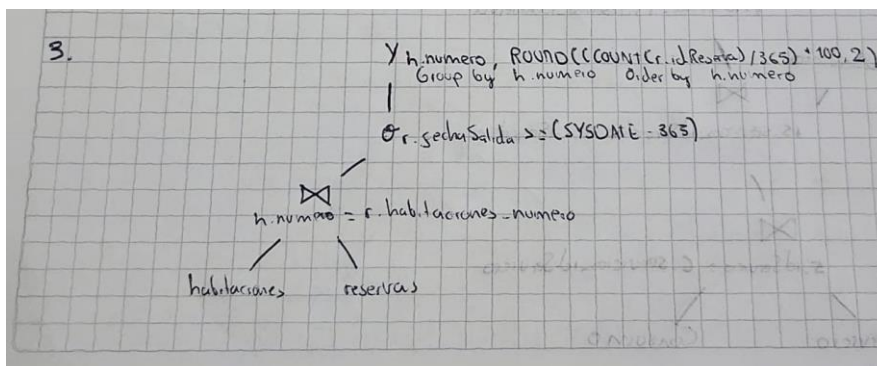 3.
γ h.numero, ROUND((COUNT(r.idReserva)/365) * 100, 2)
Group by h.numero Order by h.numero
σ r.fechaSalida >= (SYSDATE - 365)
⋈
h.numero = r.habitaciones_numero
habitaciones reservas